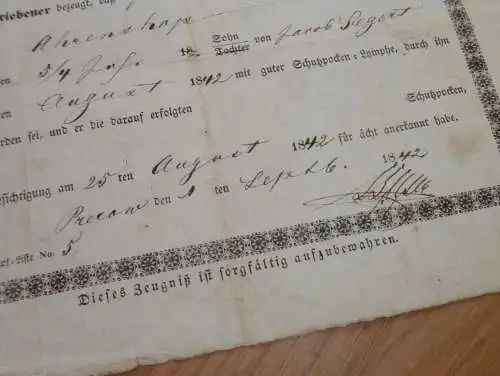 riebener bezeugt, daß
Ahrenshop
en 5/4 Jah. 18 Sohn Tochter von Jacob Segert
en August 1842 mit guter Schutzpocken-Lymphe, durch ihn
rden sei, und er die darauf erfolgten Schutzpocken,
esichtigung am 25 ten August 1842 für ächt anerkannt habe.
Prerow den 1 ten Septb. 1842
pf-Liste No. 5
Dieses Zeugniß ist sorgfältig aufzubewahren.